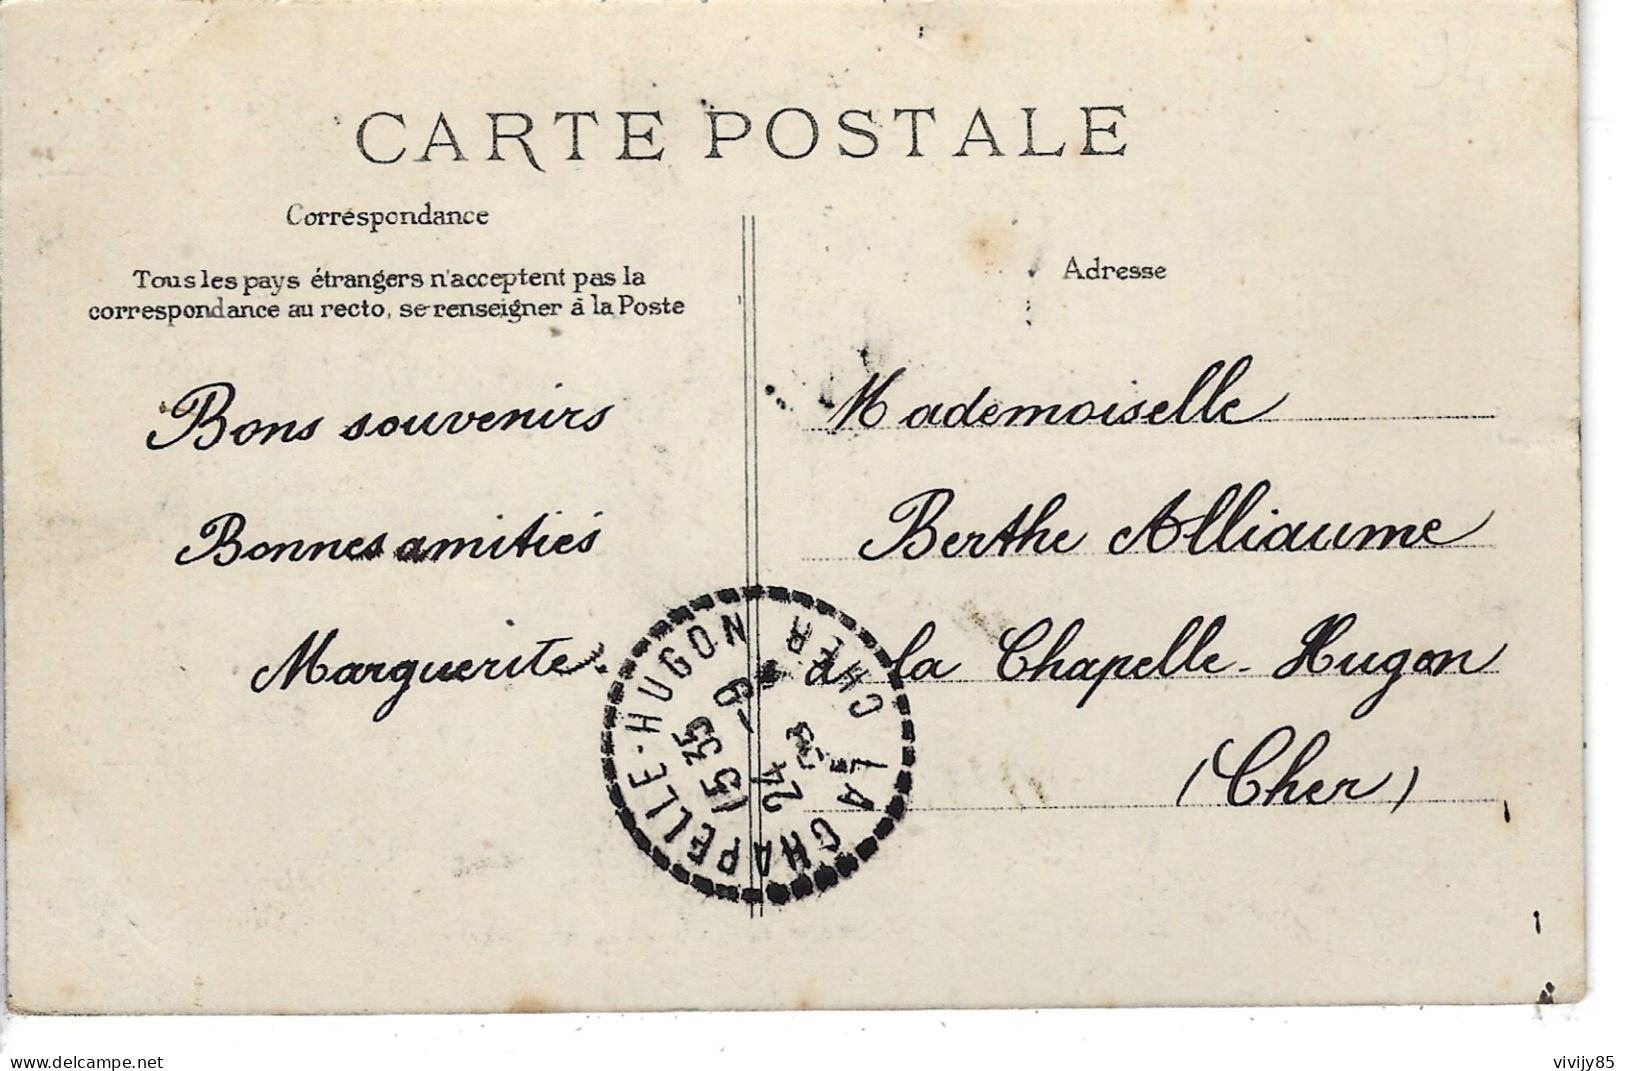 CARTE POSTALE
Correspondance
Tous les pays étrangers n'acceptent pas la
correspondance au recto, se renseigner à la Poste
Bons souvenirs
Bonnes amitiés
Marguerite.
Adresse
Mademoiselle
Berthe Alliaume
à la Chapelle-Hugon
(Cher)
LA CHAPELLE-HUGON
CHER
15 35
24
www.delcampe.net
vivijy85